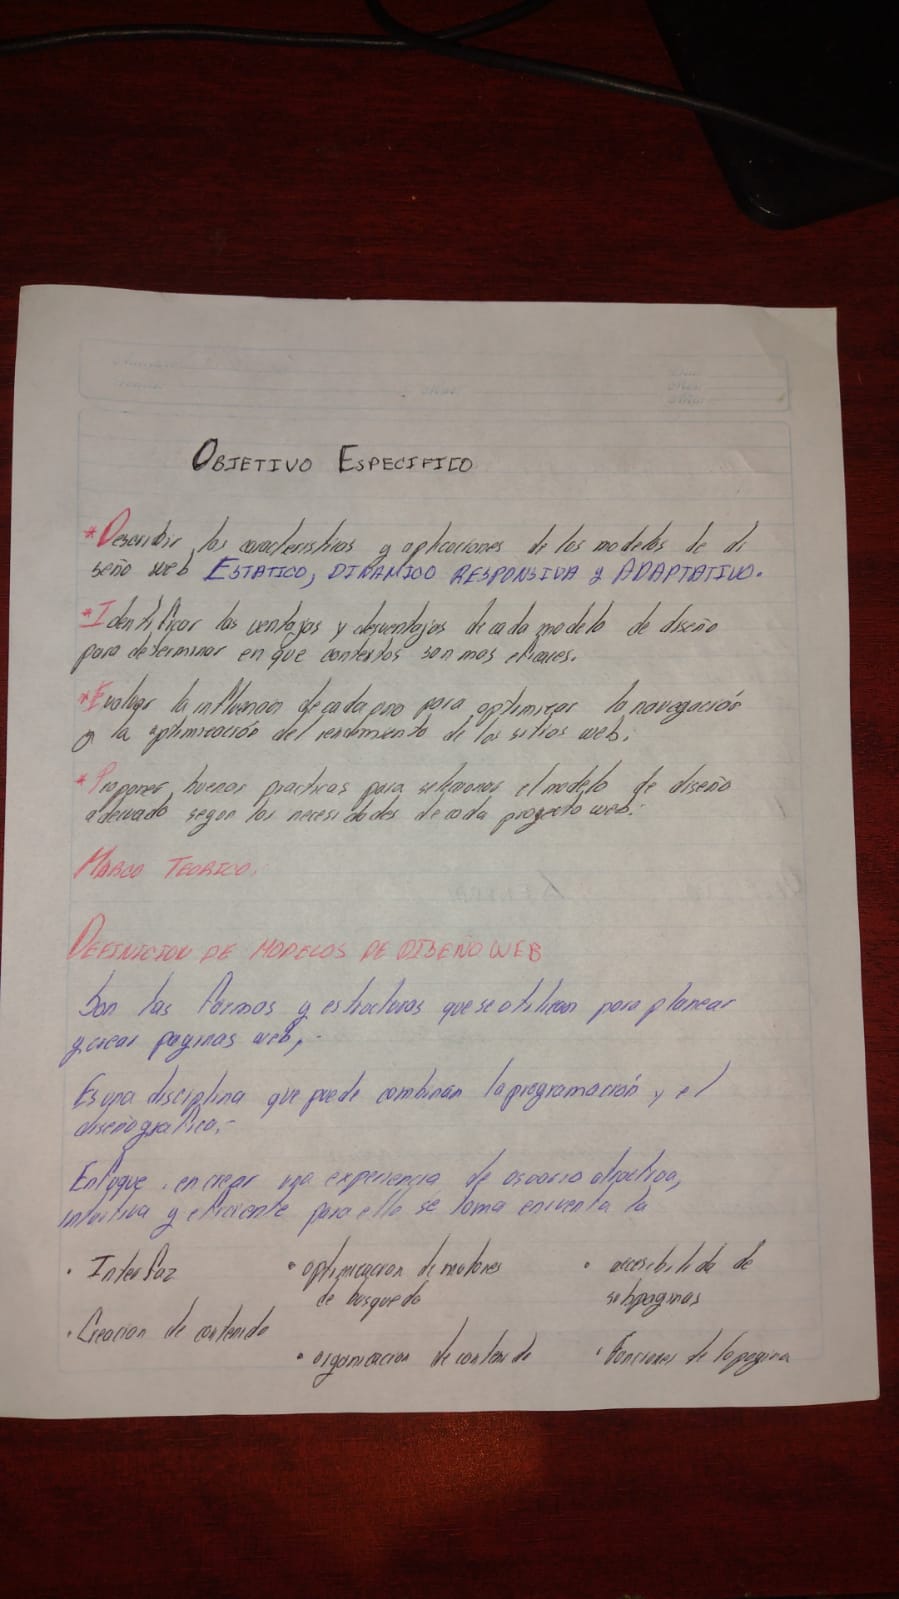 OBJETIVO ESPECIFICO
*Describir las caracteristicas y aplicaciones de los modelos de di
seño web ESTATICO, DINAMICO RESPONSIVA y ADAPTATIVO.
*Identificar las ventajas y desventajas de cada modelo de diseño
para determinar en que contextos son mas eficaces.
*Evaluar la influencia de cada uno para optimizar la navegación
y la optimización del rendimiento de los sitios web.
*Proponer buenas practicas para seleccionar el modelo de diseño
adecuado segun las necesidades de cada proyecto web.
MARCO TEORICO.
DEFINICION DE MODELOS DE DISEÑO WEB
Son las formas y estructuras que se utilizan para planear
y crear paginas web,.-
Es una disciplina que puede combinan la programación y el
diseño grafico.-
Enfoque en crear una experiencia de usuario atractiva,
intuitiva y eficiente para ello se toma en cuenta la
• Interfaz • optimizacion de motores • accesibilida de
de busqueda subpaginas
• Creacion de contenido
• organizacion de contenido • Funciones de la pagina